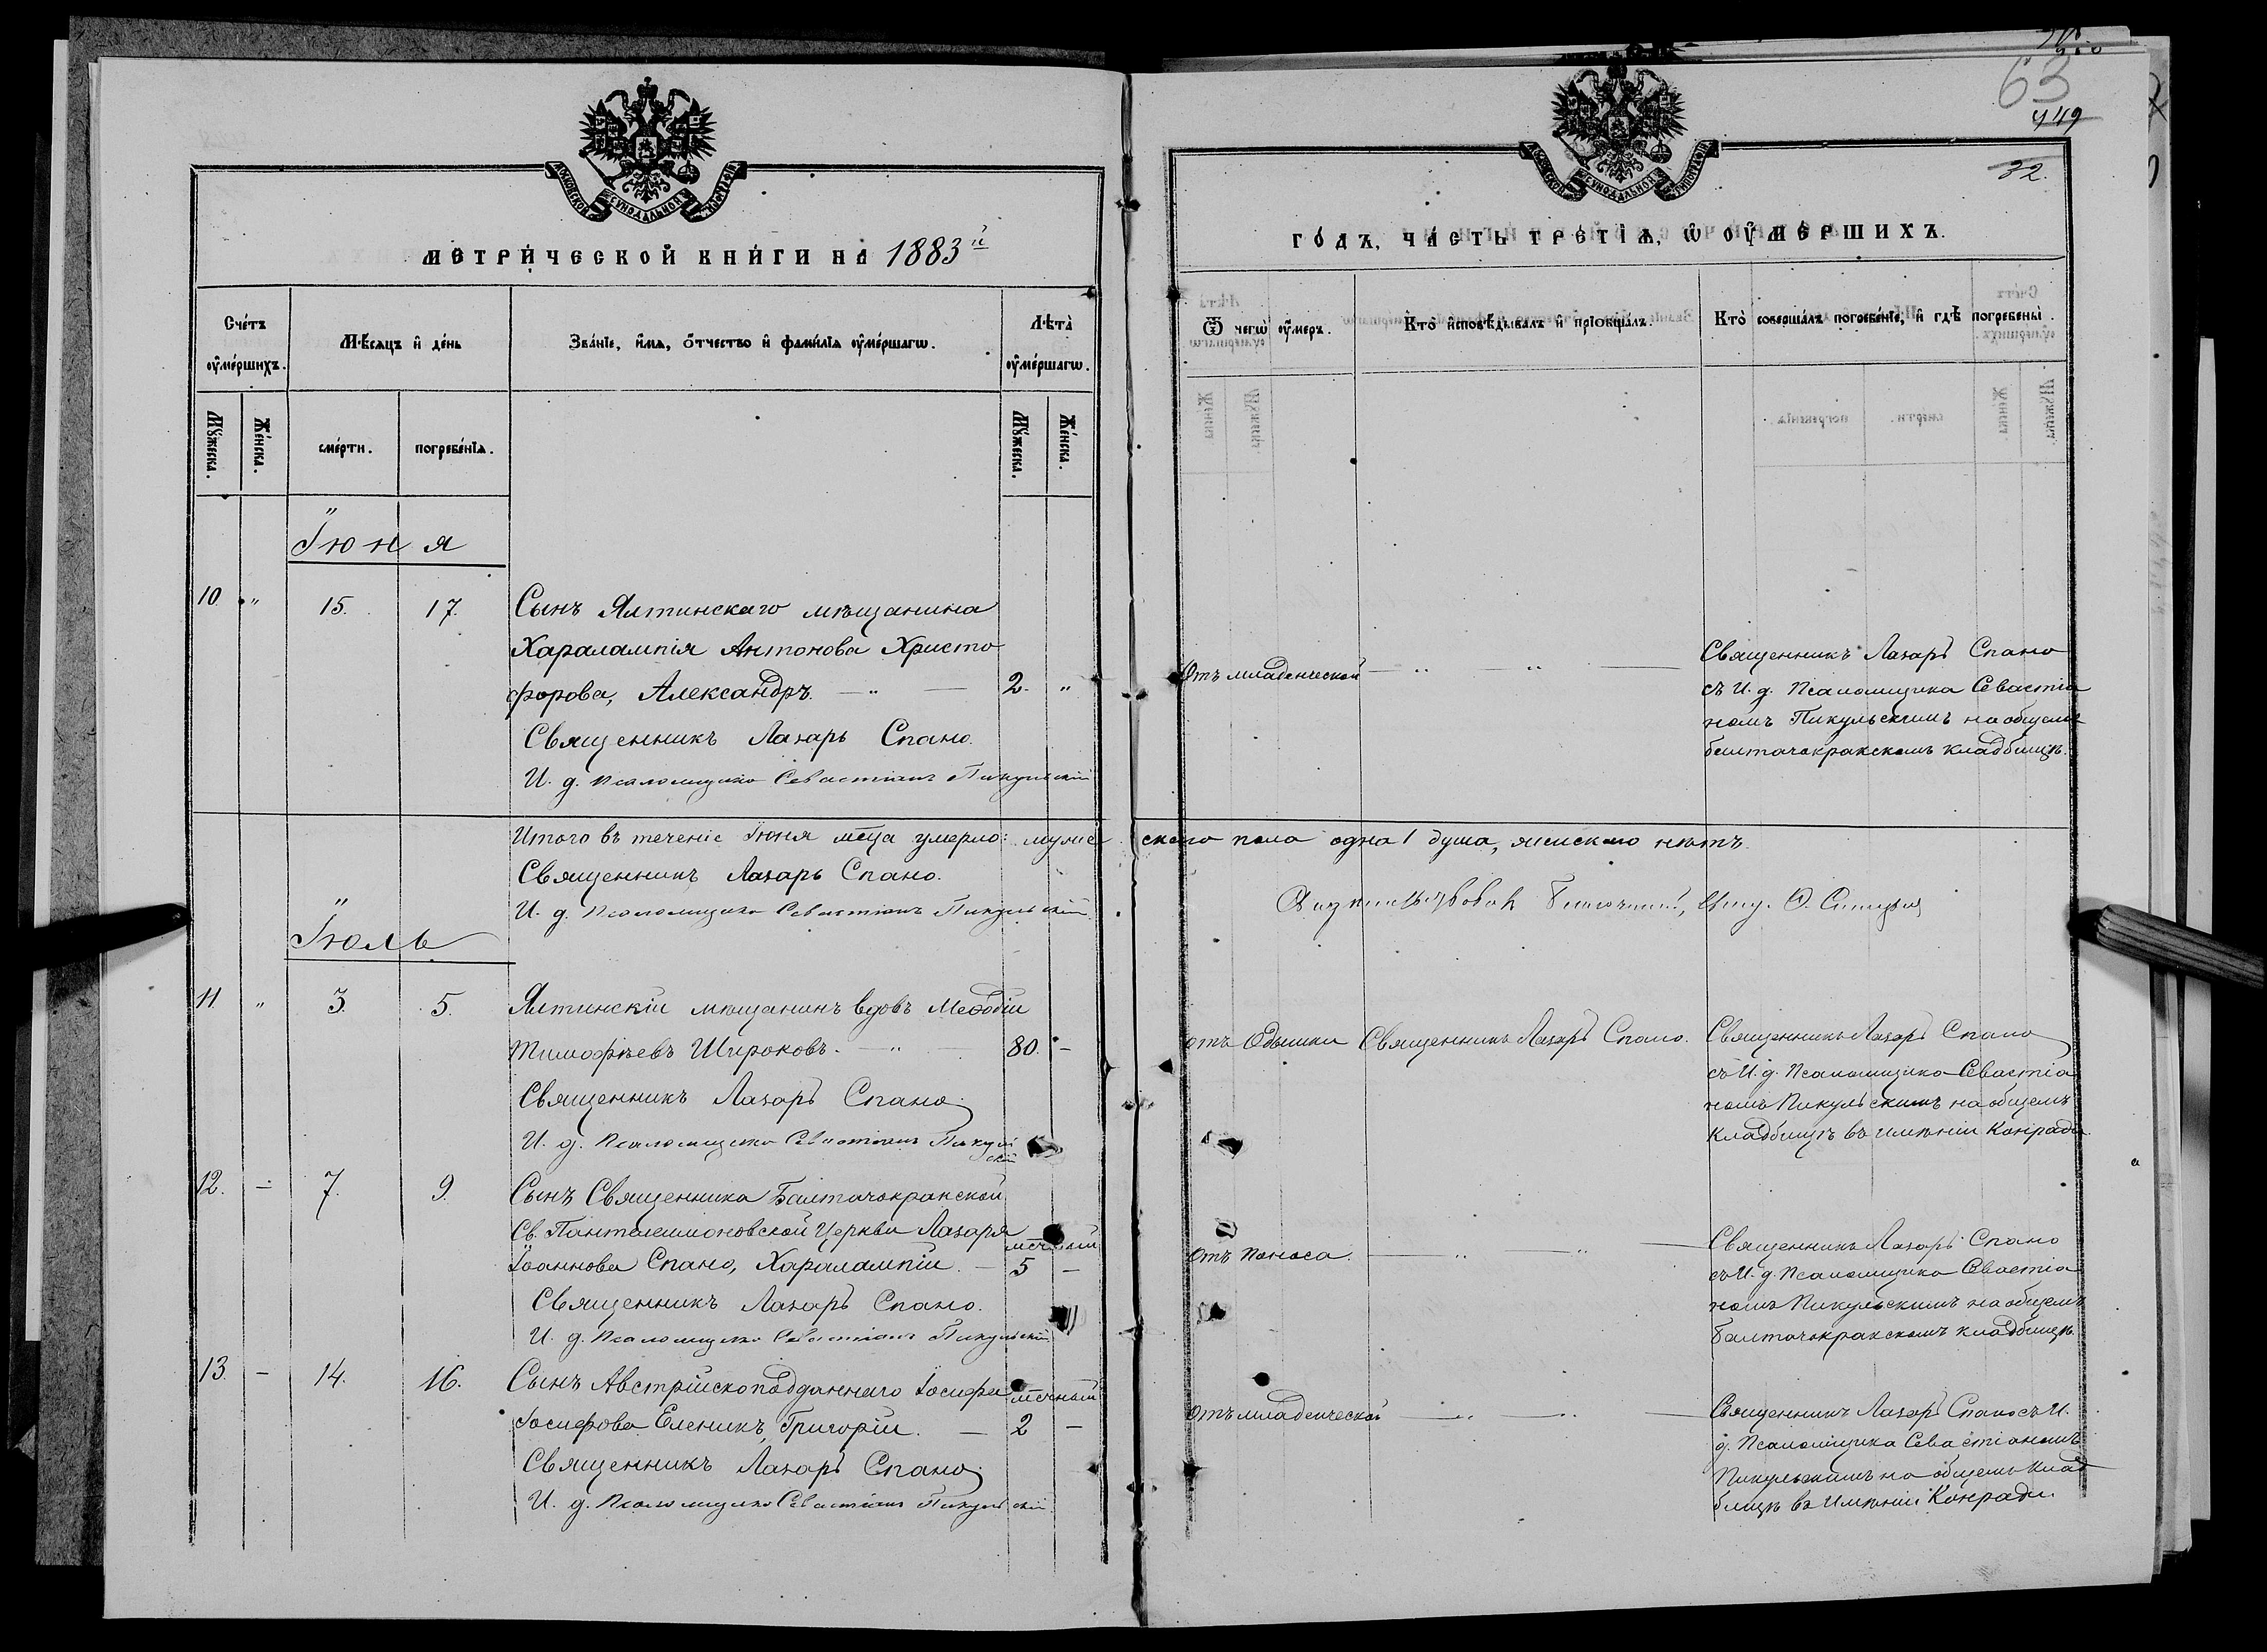 МОСКОВСКОЙ СѴНОДАЛЬНОЙ ТИПОГРАФІИ
МЕТРИ́ЧЕСКОЙ КНИ́ГИ НА 1883й
Сче́тъ ᲂу҆ме́ршихъ.
Мꙋ́жеска.
Же́нска.
Мѣ́сяцъ и҆ де́нь
сме́рти.
погребе́нїѧ.
Зва́нїе, и҆́мѧ, ѻ҆́тчество и҆ фами́лїѧ ᲂу҆ме́ршагѡ.
Лѣ́та ᲂу҆ме́ршагѡ.
Мꙋ́жеска.
Же́нска.
Іюня
10 " 15. 17. Сынъ Ялтинскаго мѣщанина
Харалампія Антонова Христо
форова, Александръ. — " — 2. "
Священникъ Лазарь Спано.
И. д. Псаломщика Севастіанъ Пикульскій
Итого въ теченіе Іюня мсца умерло: мужес
Священникъ Лазарь Спано.
И. д. Псаломщика Севастіанъ Пикульскій
Іюль
11. " 3. 5. Ялтинскій мѣщанинъ вдовъ Меѳодій
Тимофѣевъ Широковъ. — " 80. —
Священникъ Лазарь Спано
И. д. Псаломщика Севастіанъ Пикуль
скій
12. — 7. 9. Сынъ Священника Балтачокракской
Св. Пантелеимоновской Церкви Лазаря
Іоаннова Спано, Харалампій. — мсчный 5 —
Священникъ Лазарь Спано.
И. д. Псаломщика Севастіанъ Пикульскій
13. — 14. 16. Сынъ Австрійскоподданнаго Іосифа мсчный
Іосифова Еленикъ, Григорій. — 2 —
Священникъ Лазарь Спано
И. д. Псаломщика Севастіанъ Пикульскій
63
449
32.
МОСКОВСКОЙ СѴНОДАЛЬНОЙ ТИПОГРАФІИ
ГО́ДЪ, ЧА́СТЬ ТРЕ́ТЇѦ, Ѡ҆ ОУ҆МЕ́РШИХЪ.
Ѿ чегѡ̀ ᲂу҆́меръ.
Кто̀ и҆сповѣ́дывалъ и҆ прїѻбща́лъ.
Кто̀ соверша́лъ погребе́нїе, и҆ гдѣ̀ погребены̀.
Отъ младенческой — " — " —
Священникъ Лазарь Спано
съ И. д. Псаломщика Севастіа
номъ Пикульскимъ на общемъ
балтачокракскомъ кладбищѣ.
скаго пола одна 1 душа, женскаго нѣтъ.
отъ Одышки
Священникъ Лазарь Спано.
Священникъ Лазарь Спано
съ И. д. Псаломщика Севастіа
номъ Пикульскимъ на общемъ
кладбищѣ въ имѣніи Конради.
отъ Поноса. — " — " —
Священникъ Лазарь Спано
съ И. д. Псаломщика Севастіа
номъ Пикульскимъ на общемъ
балтачокракскомъ кладбищѣ.
отъ младенческой — " — " —
Священникъ Лазарь Спано съ И.
д. Псаломщика Севастіаномъ
Пикульскимъ на общемъ клад
бищѣ въ имѣніи Конради.